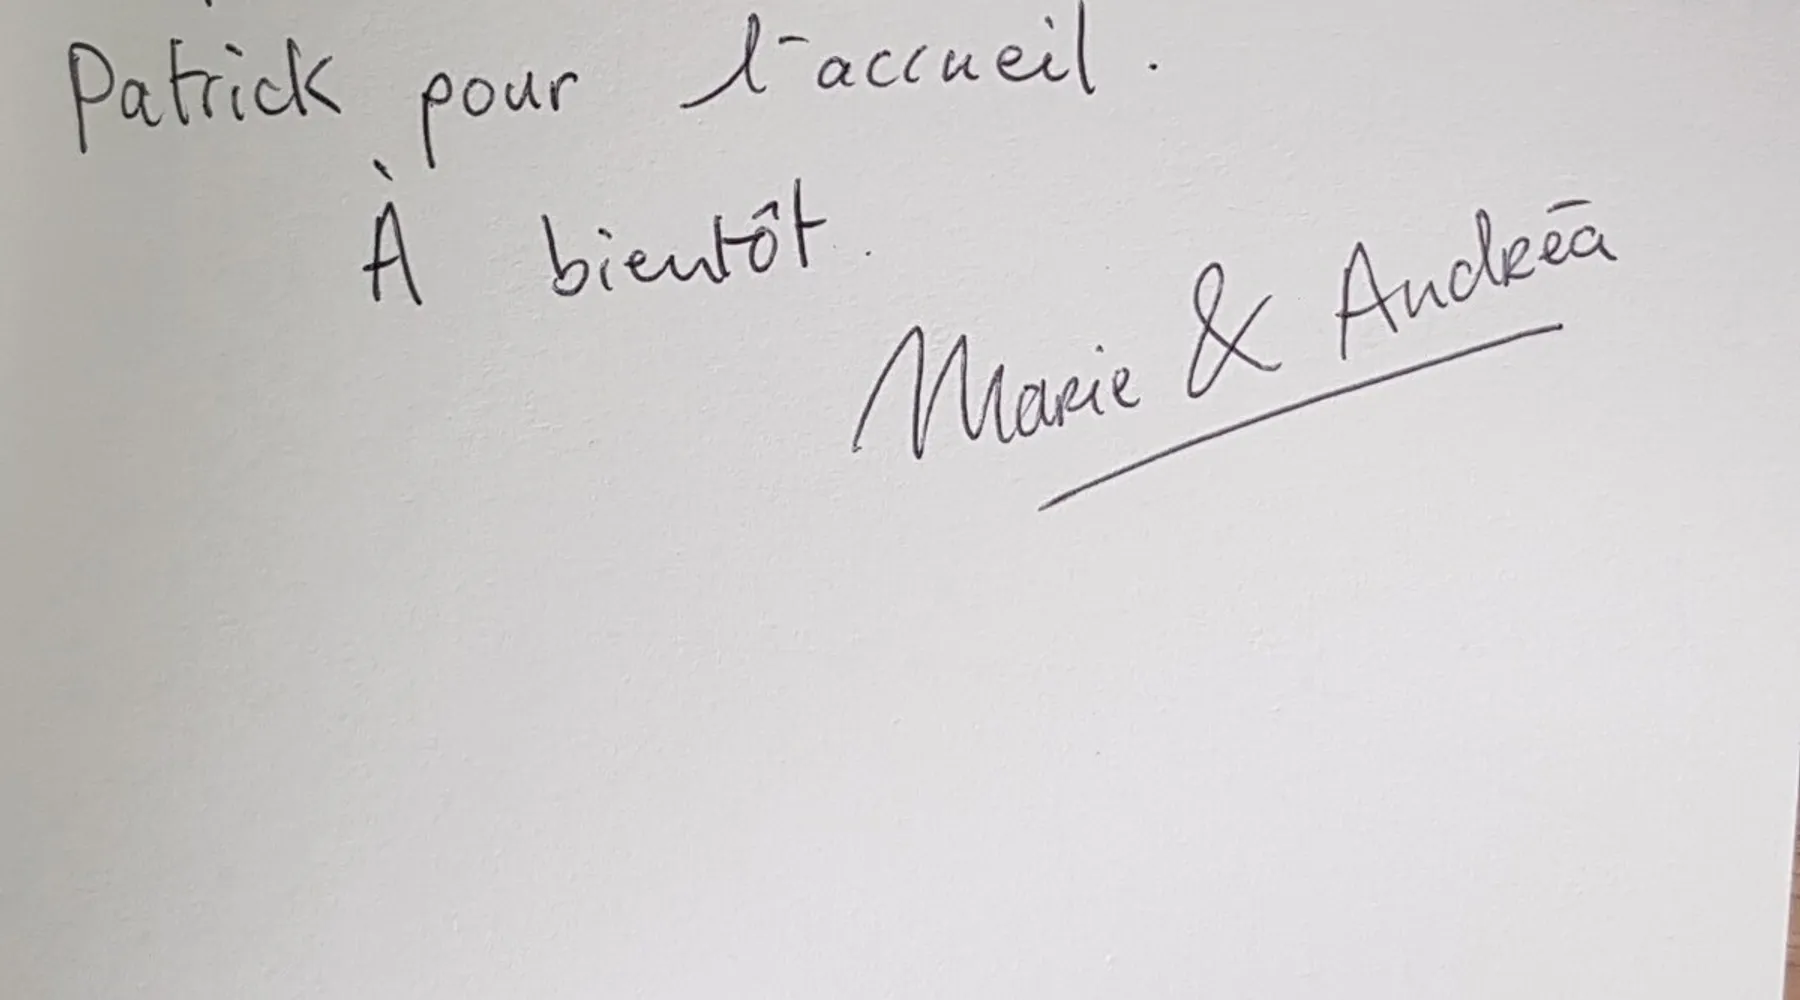 Patrick pour l'accueil.
À bientôt.
Marie & Andréa